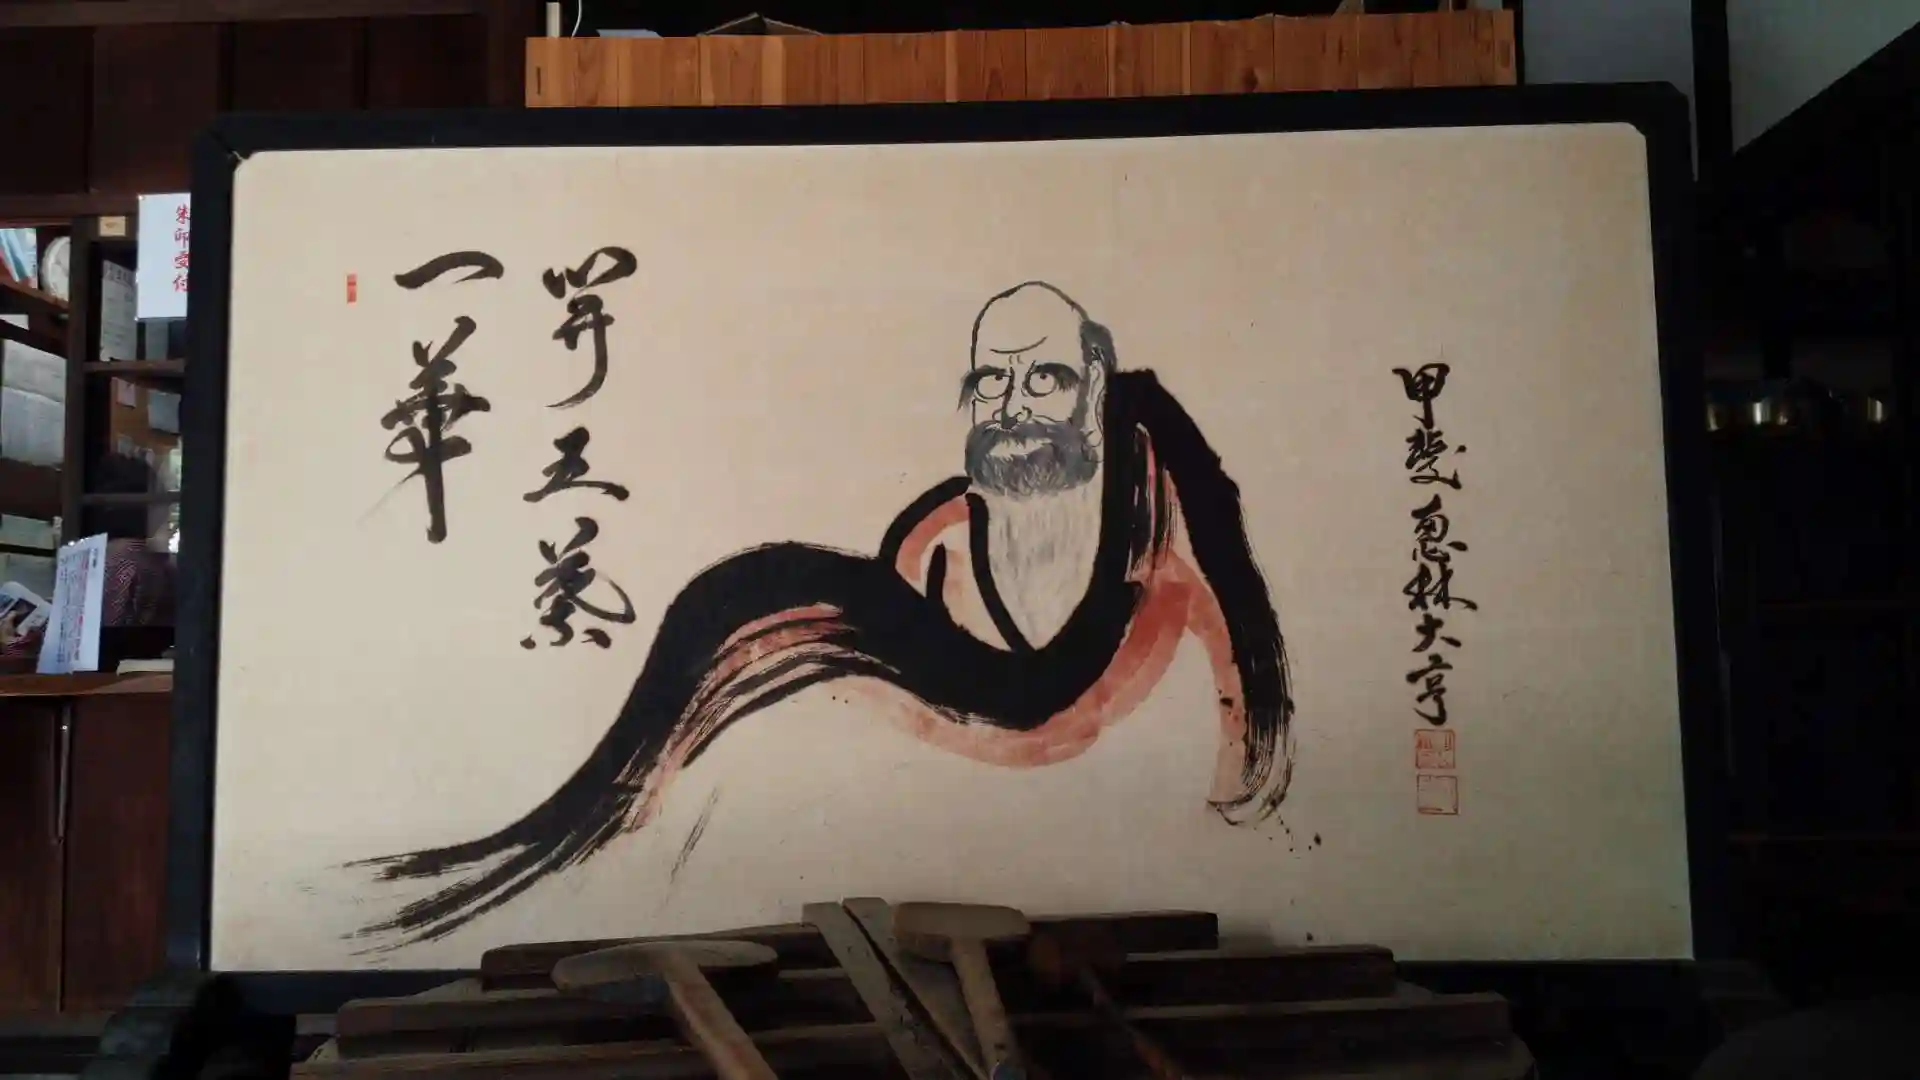 朱印受付
一華
開五葉
甲斐恵林大亨